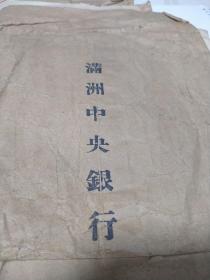 滿洲中央銀行